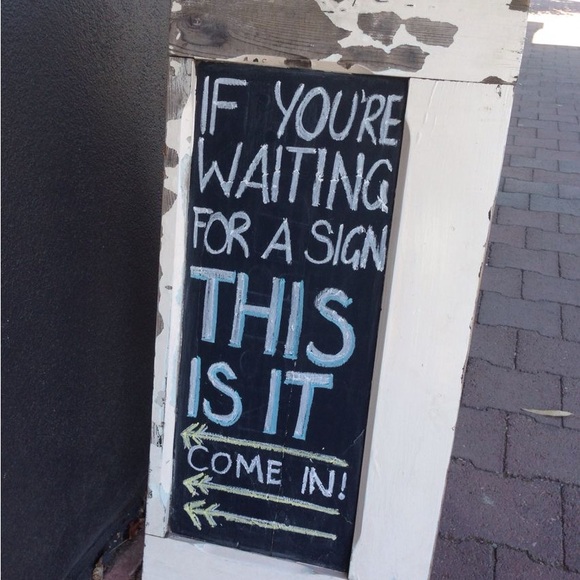 IF YOU'RE
WAITING
FOR A SIGN
THIS
IS IT
COME IN!